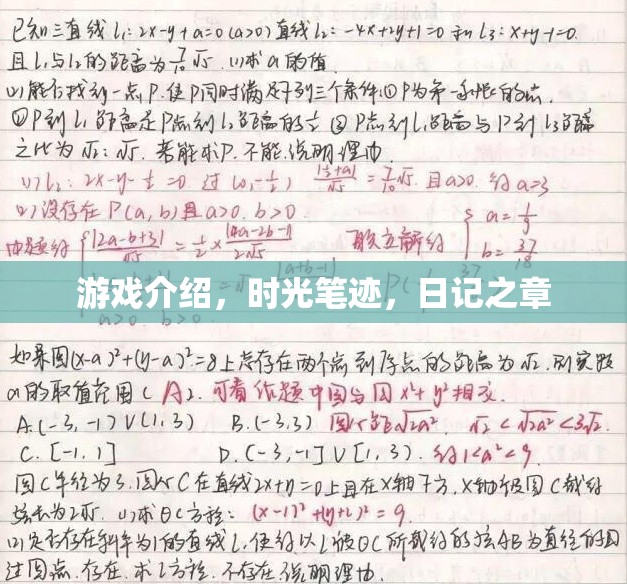 已知三直线 l₁: 2x-y+a=0 (a>0) 直线 l₂: -4x+2y+1=0 和 l₃: x+y-1=0.
且 l₁与l₂的距离为 7/10 √5. (1)求a的值.
(2)能否找到一点P. 使P同时满足下列三个条件: ①P为第一象限的点.
②P到l₁距离是P点到l₂距离的 1/2 ③P点到l₁距离与P到l₃距离
之比为 √2:√5. 若能求P. 不能, 说明理由.
(1) l₂: 2x-y-1/2=0 过 (0,-1/2) |1/2+a|/√5 = 7/10 √5. 且a>0. 得a=3
(2) 设存在P(a,b)且a>0. b>0
由题得 { |2a-b+3|/√5 = 1/2 × |4a-2b-1|/2√5 联立解得 { a=1/9 b=37/18
游戏介绍，时光笔迹，日记之章
a>0. b>0
如果圆(x-a)²+(y-a)²=8上总存在两个点到原点的距离为√2. 则实数
a的取值范围 ( A ). 可看作题中圆与圆x²+y² 相交.
A. (-3,-1)∨(1,3) B. (-3,3) 圆心距√2a² √2<√2a²<3√2.
C. [-1,1] D. (-3,-1]∨[1,3). 得1<a²<9.
圆C半径为3. 圆心C在直线2x+y=0上且在x轴下方. x轴被圆C截得
弦长为2√5. (1)求⊙C方程: (x-1)²+(y+2)²=9.
(2)是否存在斜率为1的直线l. 使得以l被⊙C所截得的弦AB为直径的圆
过圆点. 存在. 求l方程. 不存在, 说明理由.